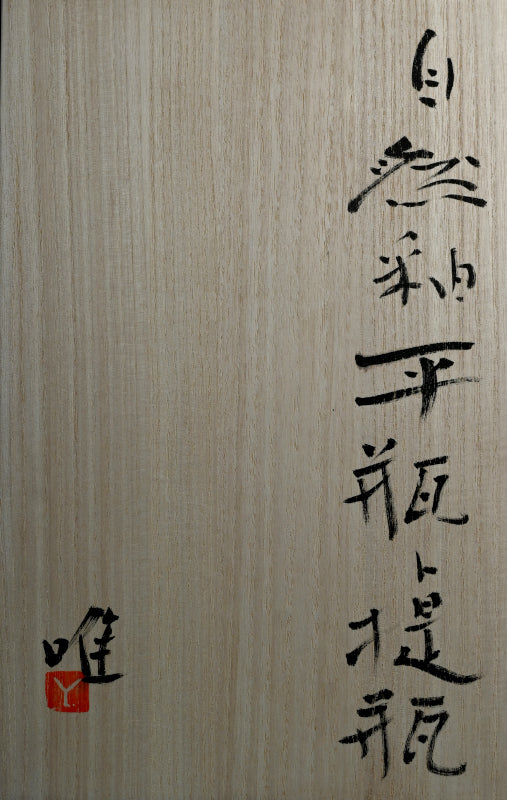 自然釉平瓶ト提瓶
唯
Y